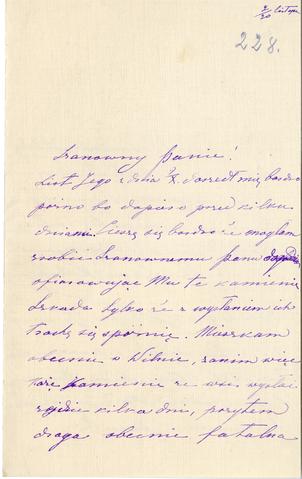 228.
Szanowny Panie!
List Jego z dnia X. doszedł mię bardzo
późno bo dopiero przed kilku
dniami. Cieszę się bardzo że mogłam
zrobić Szanownemu Panu
ofiarowując Mu te kamienie
Szkoda tylko że z wysłaniem ich
trochę się spóźnię. Mieszkam
obecnie w Wilnie, zanim więc
każę kamienie ze wsi wysłać
zejdzie kilka dni, przytem
droga obecnie fatalna